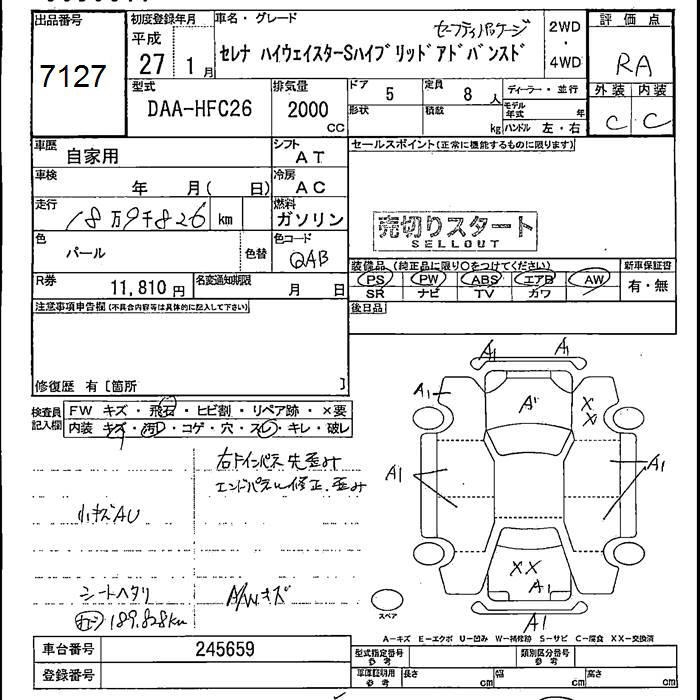 出品番号
7127
初度登録年月
平成
27 1月
車名・グレード
セーフティパッケージ
セレナ ハイウェイスターSハイブリッドアドバンスド
2WD
・
4WD
評価点
RA
外装 内装
C C
型式
DAA-HFC26
排気量
2000
CC
ドア
5
定員
8 人
形状
積数
kg
ディーラー・並行
モデル年式 年
ハンドル 左・右
車歴
自家用
シフト
AT
車検
年 月( 日)
冷房
AC
走行
18万9千826 km
燃料
ガソリン
色
パール
色替
色コード
QAB
R券
11,810円
名変通知期限
月 日
セールスポイント(正常に機能するものに限ります)
売切りスタート
SELLOUT
装備品 (純正品に限り○をつけてください)
PS PW ABS エアB AW
SR ナビ TV カワ
新車保証書
有・無
後日品
注意事項申告欄(不具合内容等は具体的に記入して下さい)
修復歴 有[箇所 ]
検査員
記入欄
FW キズ・飛石・ヒビ割・リペア跡・×要
内装 キズ・汚れ・コゲ・穴・スレ・キレ・破レ
右ドインパネ先歪み
エンドパネル修正、歪み
小キズAU
シートヘタリ
A/Wキズ
189.828km
A1 A1
A1
A'
X
X
A1
A1
XX
A1
A1
スペア
A−キズ E−エクボ U−凹み W−補修跡 S−サビ C−腐食 XX−交換済
車台番号
245659
登録番号
型式指定番号
参考
類別区分番号
参考
車庫証明用
参考
長さ cm
幅 cm
高さ cm